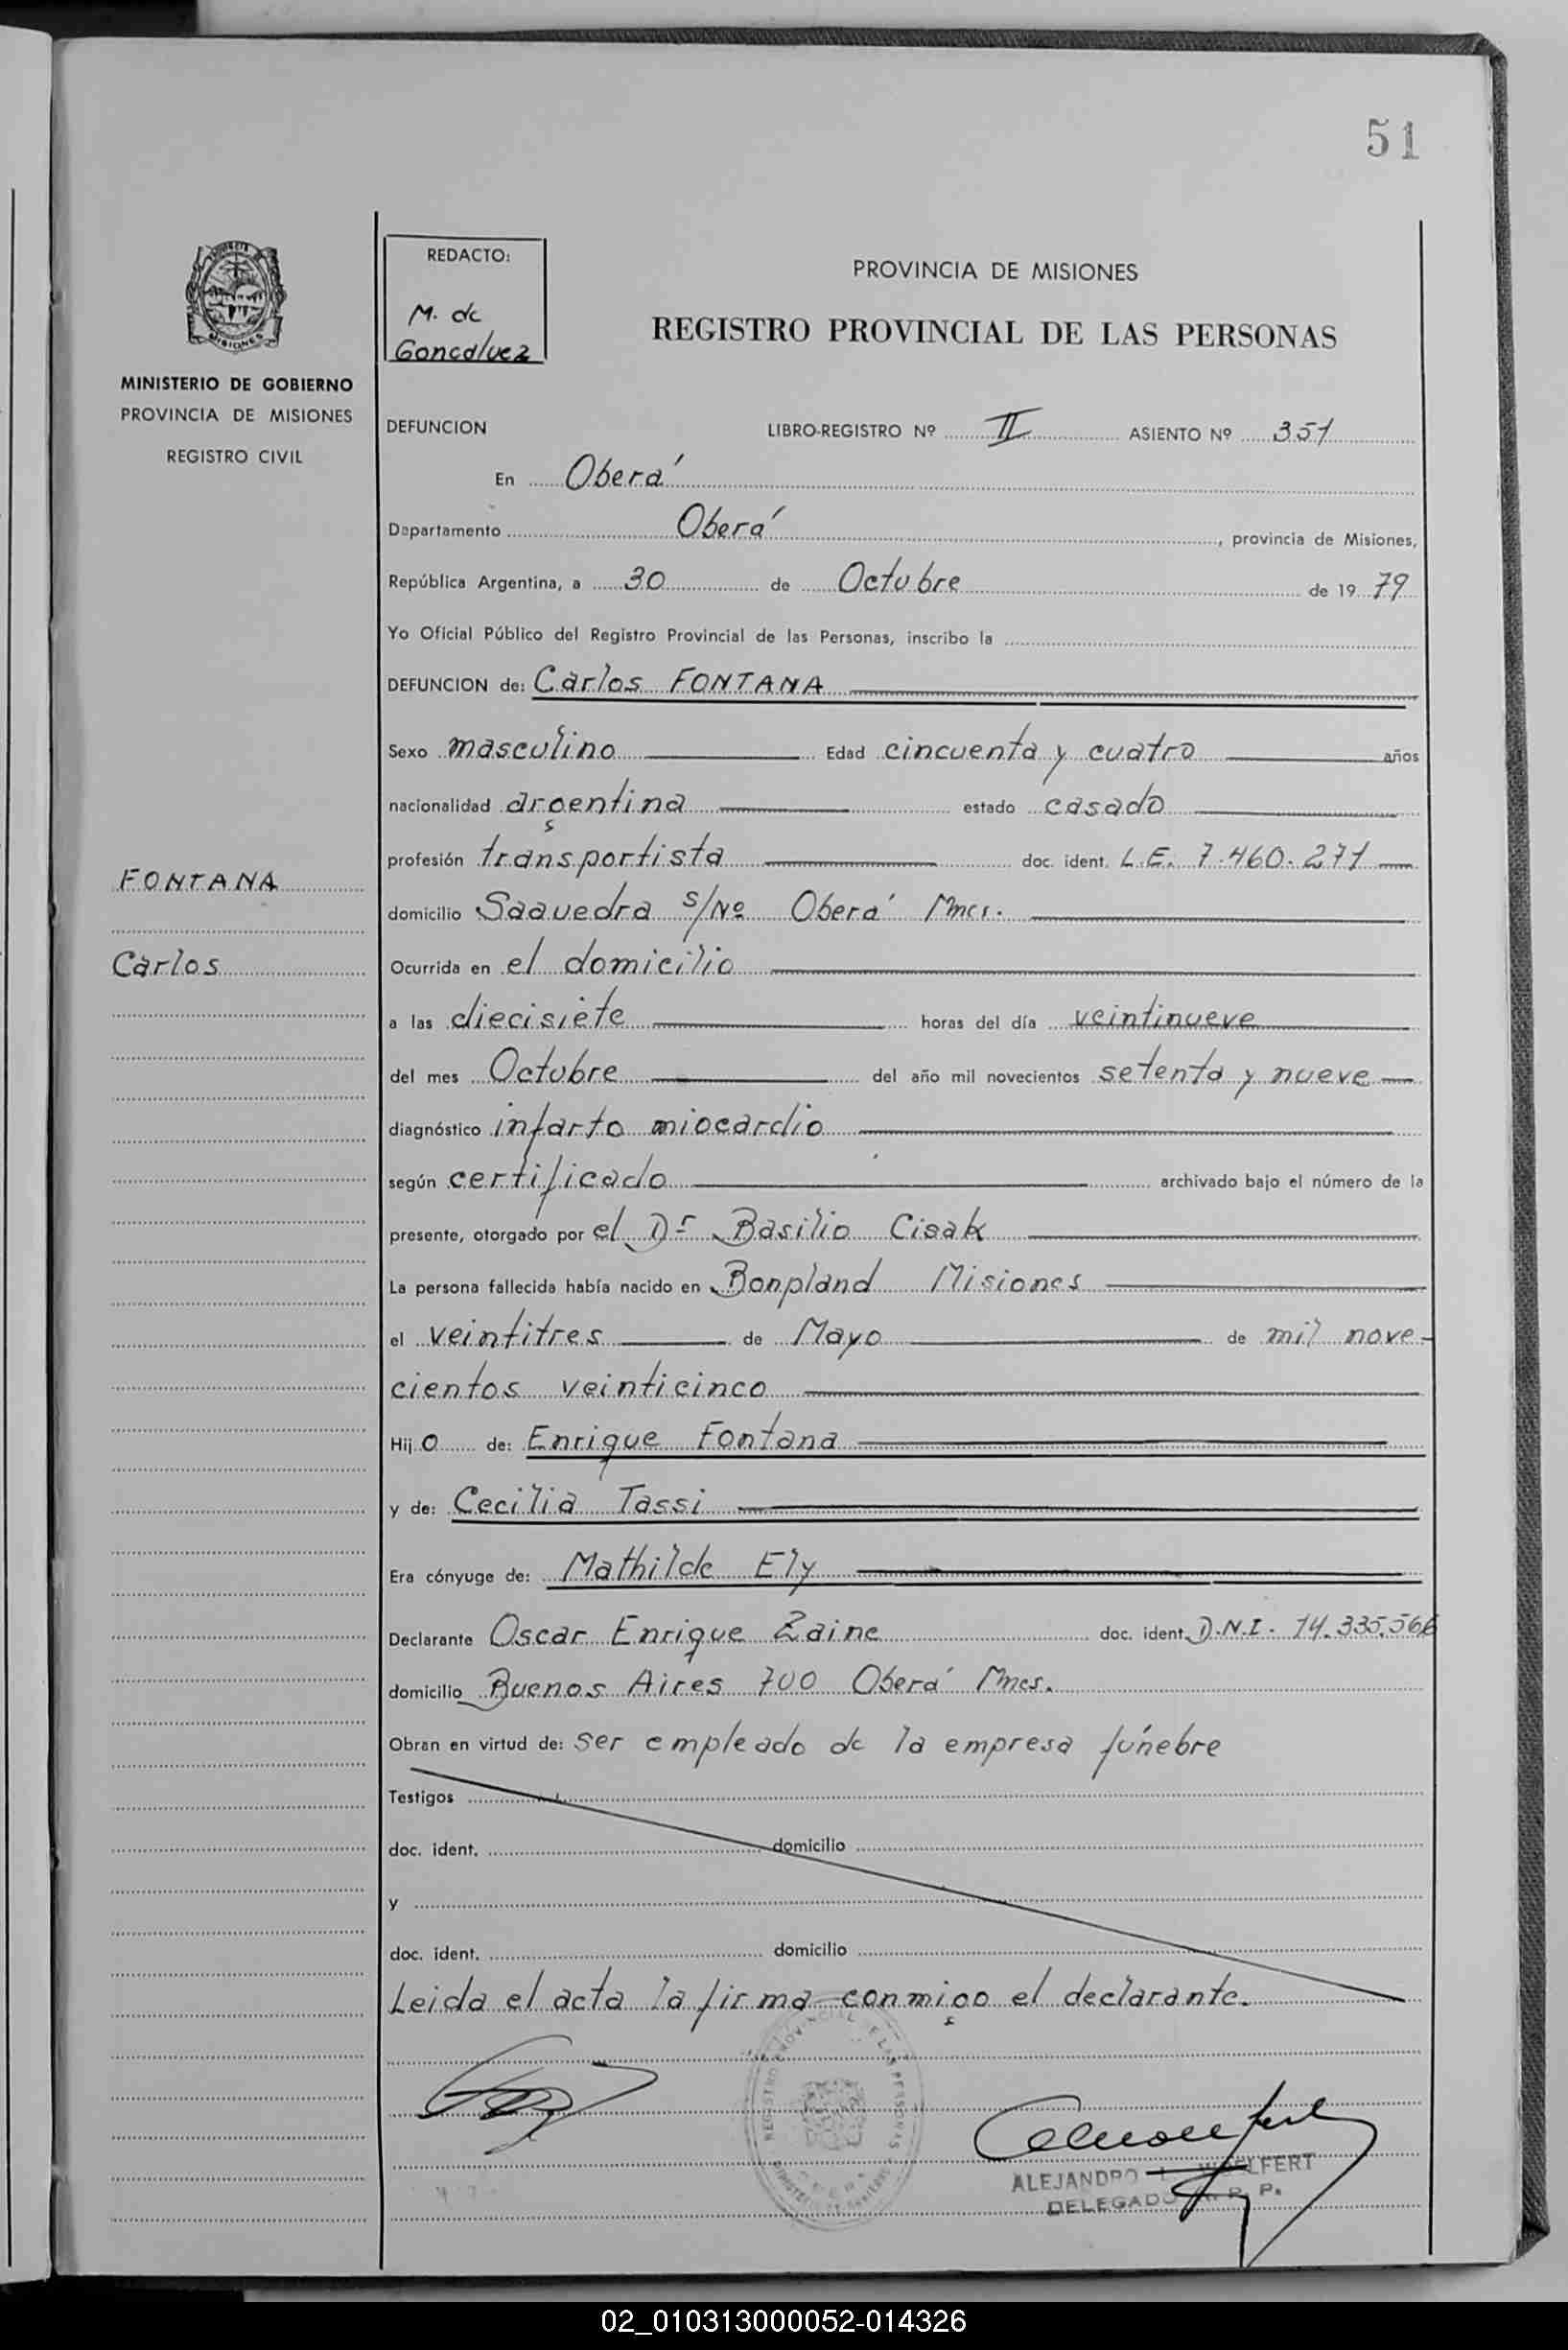 51
REDACTO:
M. de
Goncalvez
PROVINCIA DE MISIONES
REGISTRO PROVINCIAL DE LAS PERSONAS
MINISTERIO DE GOBIERNO
PROVINCIA DE MISIONES
REGISTRO CIVIL
DEFUNCION LIBRO-REGISTRO Nº II ASIENTO Nº 351
En Oberá
Departamento Oberá, provincia de Misiones,
República Argentina, a 30 de Octubre de 1979
Yo Oficial Público del Registro Provincial de las Personas, inscribo la
DEFUNCION de: Carlos FONTANA
Sexo masculino Edad cincuenta y cuatro años
nacionalidad argentina estado casado
profesión transportista doc. ident. L.E. 7.460.271
FONTANA
domicilio Saavedra s/Nº Oberá Mnes.
Carlos
Ocurrida en el domicilio
a las diecisiete horas del día veintinueve
del mes Octubre del año mil novecientos setenta y nueve
diagnóstico infarto miocardio
según certificado archivado bajo el número de la
presente, otorgado por el Dr Basilio Cisak
La persona fallecida había nacido en Bonpland Misiones
el veintitres de Mayo de mil nove-
cientos veinticinco
Hijo de: Enrique Fontana
y de: Cecilia Tassi
Era cónyuge de: Mathilde Ely
Declarante Oscar Enrique Zaine doc. ident. D.N.I. 14.335.566
domicilio Buenos Aires 700 Oberá Mnes.
Obran en virtud de: ser empleado de la empresa fúnebre
Testigos
doc. ident. domicilio
y
doc. ident. domicilio
Leida el acta la firma conmigo el declarante.
REGISTRO PROVINCIAL DE LAS PERSONAS
ALEJANDRO WOELFERT
DELEGADO R. P. P.
02_010313000052-014326